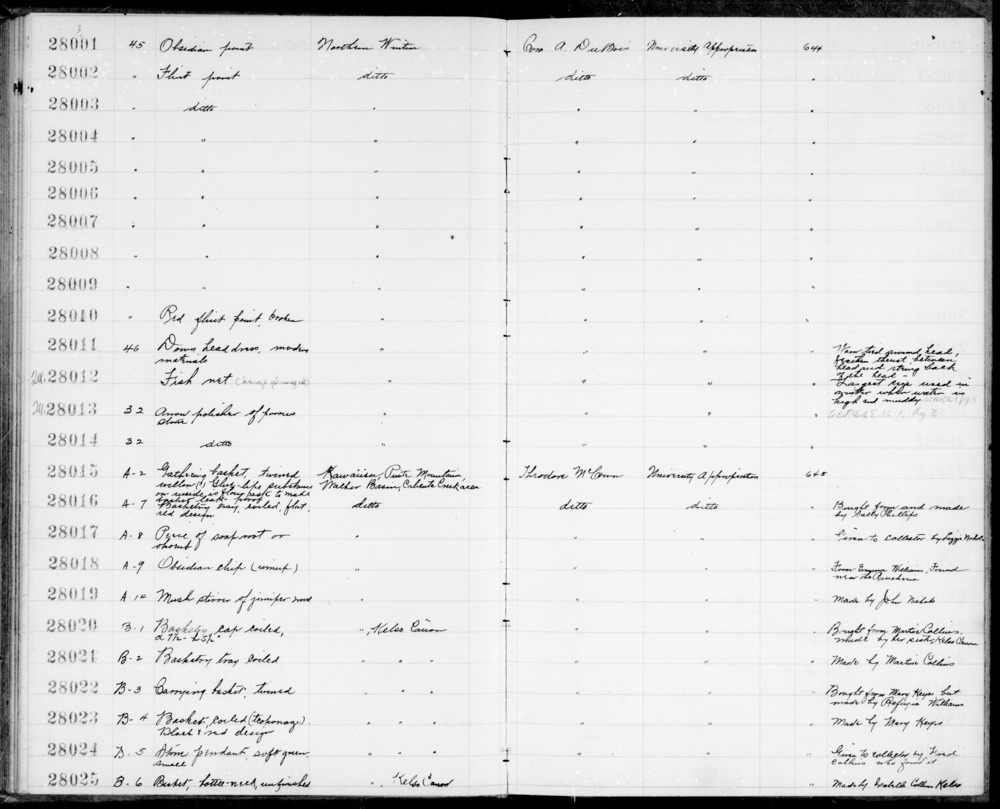 28001 45 Obsidian point Northern Wintun Cora A. DuBois University Appropriation 644
28002 " Flint point ditto ditto ditto "
28003 " ditto " " " "
28004 " " " " " "
28005 " " " " " "
28006 " " " " " "
28007 " " " " " "
28008 " " " " " "
28009 " " " " " "
28010 " Red flint point, broken " " " "
28011 46 Down head dress, modern " " " " Worn tied around head,
materials between
head and string back
of the head -
28012 Fish net " " " " Largest type used in
winter when water is
high and muddy
28013 32 Arrow polisher of porous " " " "
stone
28014 32 ditto " " " "
28015 A-2 Gathering basket, twined Kawaiisu, Piute Mountain, Theodore McCown University Appropriation 648
willow (?) Glue-like substance Walker Basin, Caliente Creek area
on inside is flour paste to made
basket leak-proof
28016 A-7 Basketry tray, coiled, flat, ditto ditto ditto " Bought from and made
red design by Sally Phillips
28017 A-8 Piece of soaproot or " " " " Given to collector by Lizzie
28018 A-9 Obsidian chip (unworked) " " " " From Emma Williams, Found
near the Rancheria
28019 A-14 Mush stirrer of juniper wood " " " " Made by John Nichols
28020 B-1 Basketry cap coiled, ", Kelso Canon " " " Bought from Martin Collins.
d 7½" h 5½" made by her sister, Kelso Canon
28021 B-2 Basketry tray coiled " " " " " " Made by Martin Collins
28022 B-3 Carrying basket, twined " " " " " " Bought from Mary Keys but
made by Refugia Williams
28023 B-4 Basket, coiled (trapanage) " " " " " " Made by Mary Keyes
Black & red design
28024 B-5 Stone pendant, soft green, " " " " " " Given to collector by Fred
small Collins who found it
28025 B-6 Basket, bottle-neck, unfinished ", Kelso Canon " " " Made by Isabella Collins Kelso